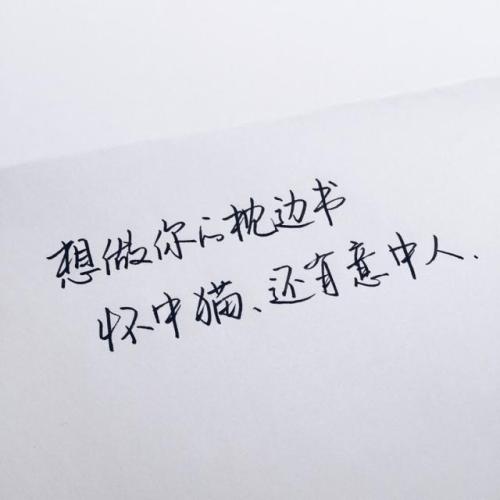 想做你的枕边书
怀中猫、还有意中人.